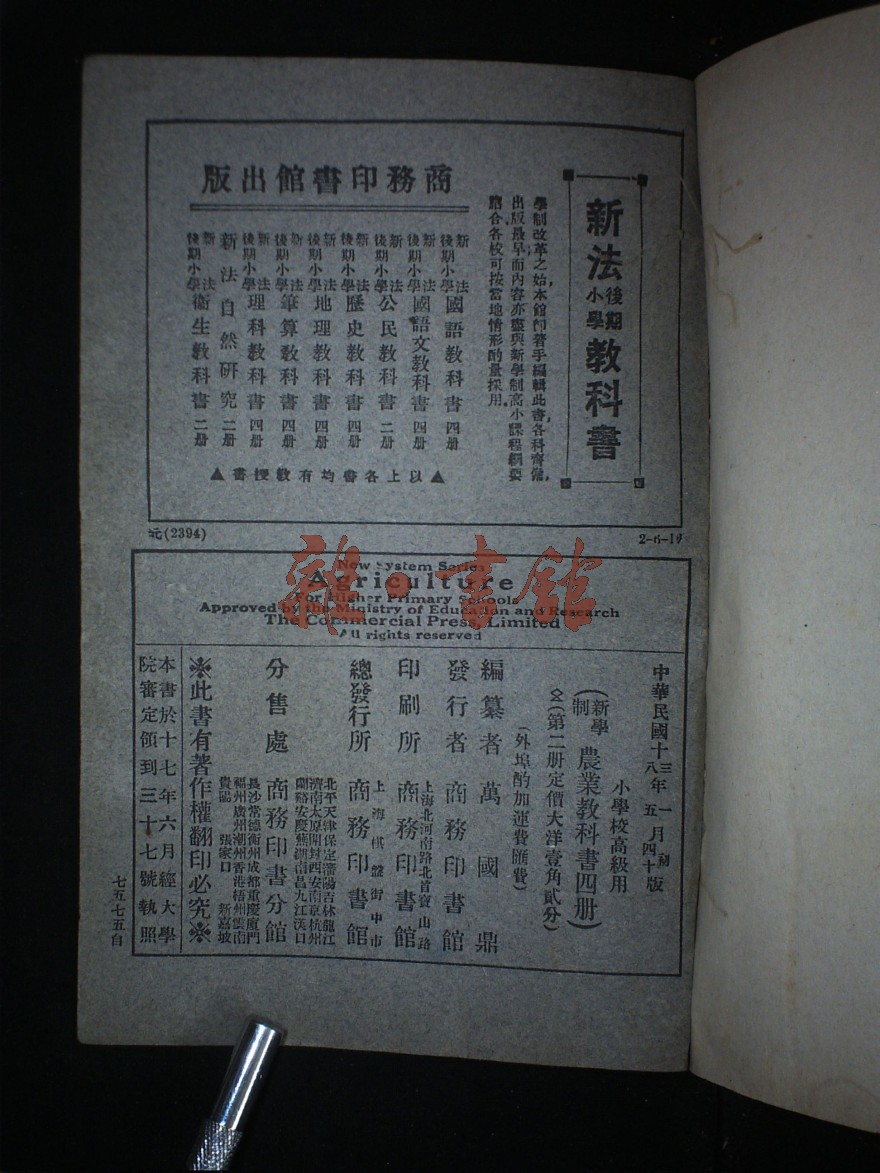 新法後期小學教科書
學制改革之始，本館即著手編輯此書，各科齊備，
出版最早，而內容亦盡與新學制高小課程綱要
膽合，各校可按當地情形酌量採用。
商務印書館出版
新法後期小學國語教科書 四册
新法後期小學國語文教科書 四册
新法後期小學公民教科書 二册
新法後期小學歷史教科書 四册
新法後期小學地理教科書 四册
新法後期小學筆算教科書 四册
新法後期小學理科教科書 四册
新法自然研究 二册
新法後期小學衛生教科書 二册
▲以上各書均有教授書▲
元(2394)
2-6-19
New System Series
Agriculture
For Higher Primary Schools
Approved by the Ministry of Education and Research
The Commercial Press, Limited
All rights reserved
中華民國十三年一月初版
八 五 四十
小學校高級用
(新學制農業教科書四册)
(第二册定價大洋壹角貳分)
(外埠酌加運費匯費)
編纂者 萬國鼎
發行者 商務印書館
上海北河南路北首寶山路
印刷所 商務印書館
上海棋盤街中市
總發行所 商務印書館
北平天津保定瀋陽吉林龍江
濟南太原開封西安南京杭州
蘭谿安慶蕪湖南昌九江漢口
分售處 商務印書分館
長沙常德衡州成都重慶廈門
福州廣州潮州香港梧州雲南
貴陽 張家口 新嘉坡
※此書有著作權翻印必究※
本書於十七年六月經大學
院審定領到三十七號執照
七五七五自